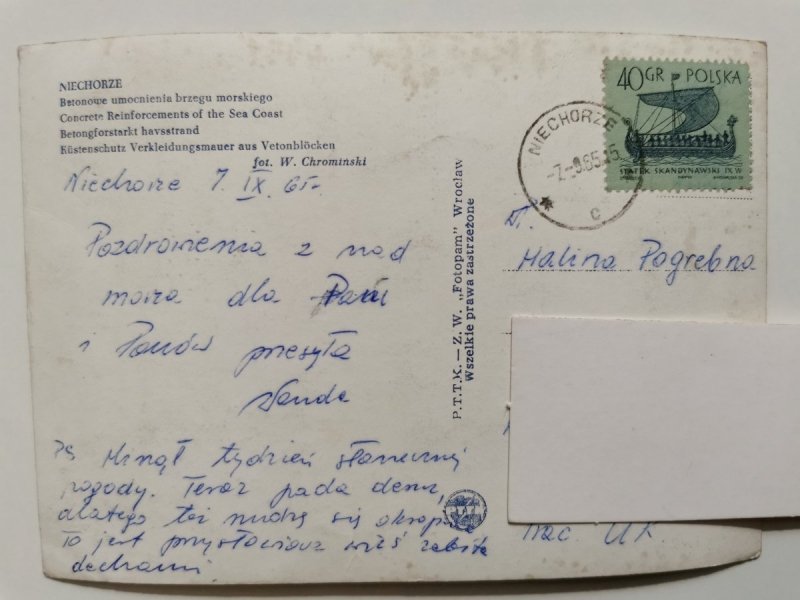 NIECHORZE
Betonowe umocnienia brzegu morskiego
Concrete Reinforcements of the Sea Coast
Betongforstarkt havsstrand
Küstenschutz Verkleidungsmauer aus Vetonblöcken
fot. W. Chrominski
Niechorze 7. IX. 65r.
Pozdrowienia z nad
morza dla Pani
i Panów przesyła
Wanda
PS Minął tydzień słonecznej
pogody. Teraz pada deszcz,
dlatego też nudzę się okropnie
To jest przysłowiowa wieś zabita
dechami
P.T.T.K. — Z. W. „Fotopam" Wrocław
Wszelkie prawa zastrzeżone
40GR POLSKA
STATEK SKANDYNAWSKI IX W
NIECHORZE
C
Halina Pogrebna